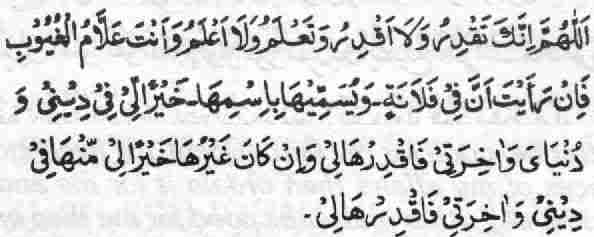 اَللّٰهُمَّ اِنَّكَ تَقْدِرُ وَلَا اَقْدِرُ وَتَعْلَمُ وَلَا اَعْلَمُ وَاَنْتَ عَلَّامُ الْغُيُوْبِ
فَاِنْ رَاَيْتَ اَنَّ فِيْ فَلَانَةٍ۔وَيُسَمِّيْهَا بِاِسْمِهَا۔خَيْرًا لِّيْ فِيْ دِيْنِيْ وَ
دُنْيَايَ وَاٰخِرَتِيْ فَاقْدِرْهَا لِيْ وَاِنْ كَانَ غَيْرُهَا خَيْرًا لِيْ مِّنْهَا فِيْ
دِيْنِيْ وَاٰخِرَتِيْ فَاقْدِرْهَا لِيْ۔